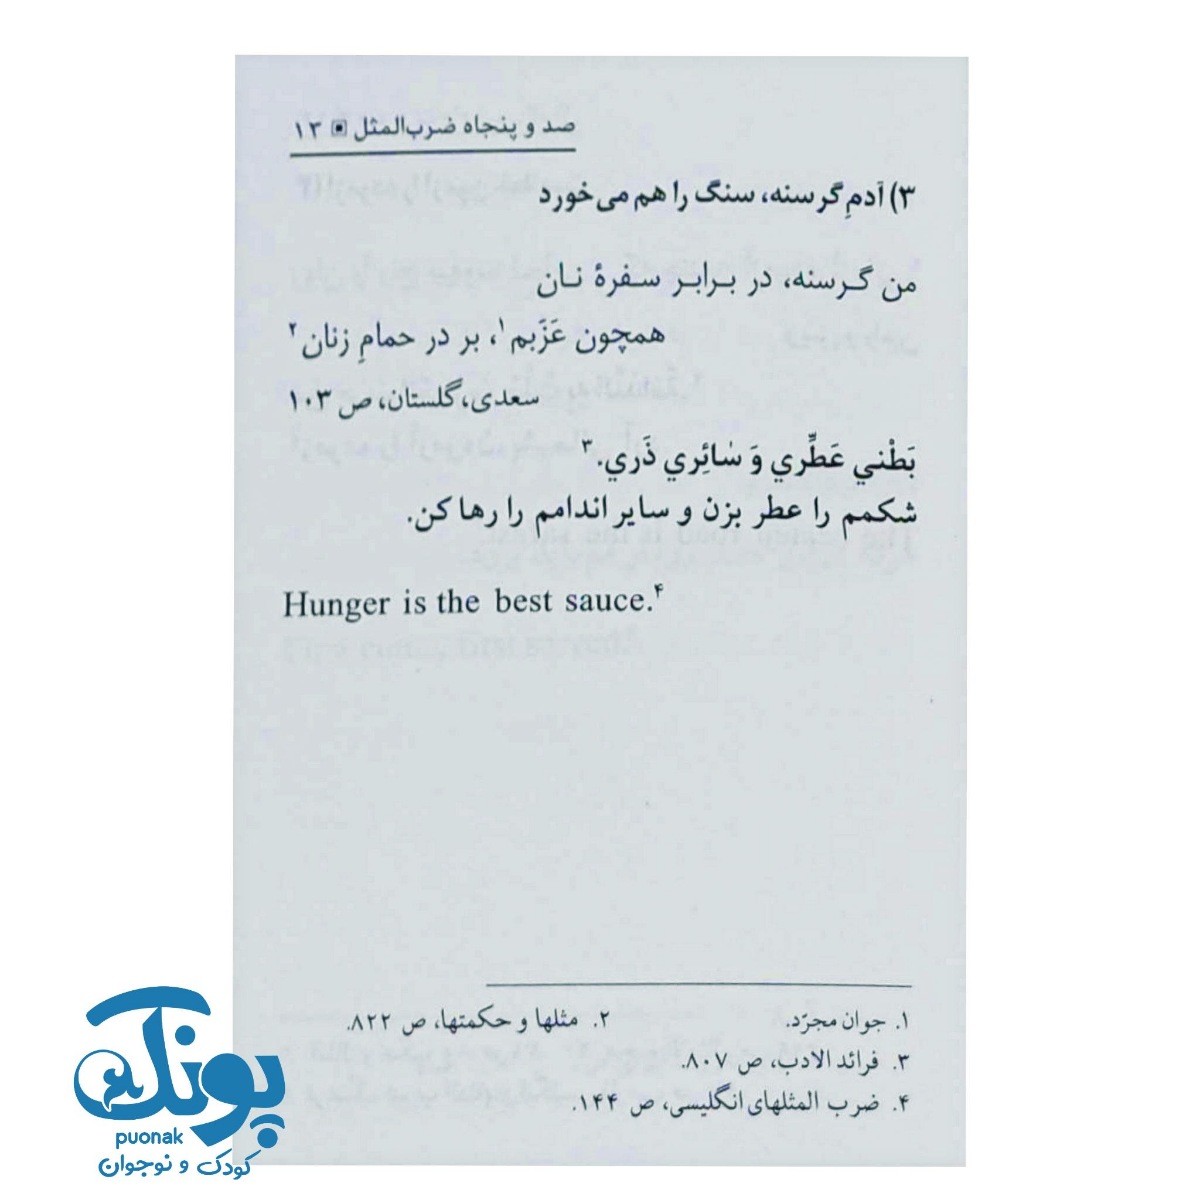 صد و پنجاه ضرب‌المثل ▣ ۱۳
۳) آدمِ گرسنه، سنگ را هم می‌خورد
من گرسنه، در برابر سفرهٔ نان
همچون عَزَبم۱، بر در حمامِ زنان۲
سعدی، گلستان، ص ۱۰۳
بَطْني عَطِّري وَ سٰائِري ذَري.۳
شکمم را عطر بزن و سایر اندامم را رها کن.
Hunger is the best sauce.۴
۱. جوان مجرّد. ۲. مثلها و حکمتها، ص ۸۲۲.
۳. فرائد الادب، ص ۸۰۷.
۴. ضرب المثلهای انگلیسی، ص ۱۴۴.
پونک
puonak
کودک و نوجوان